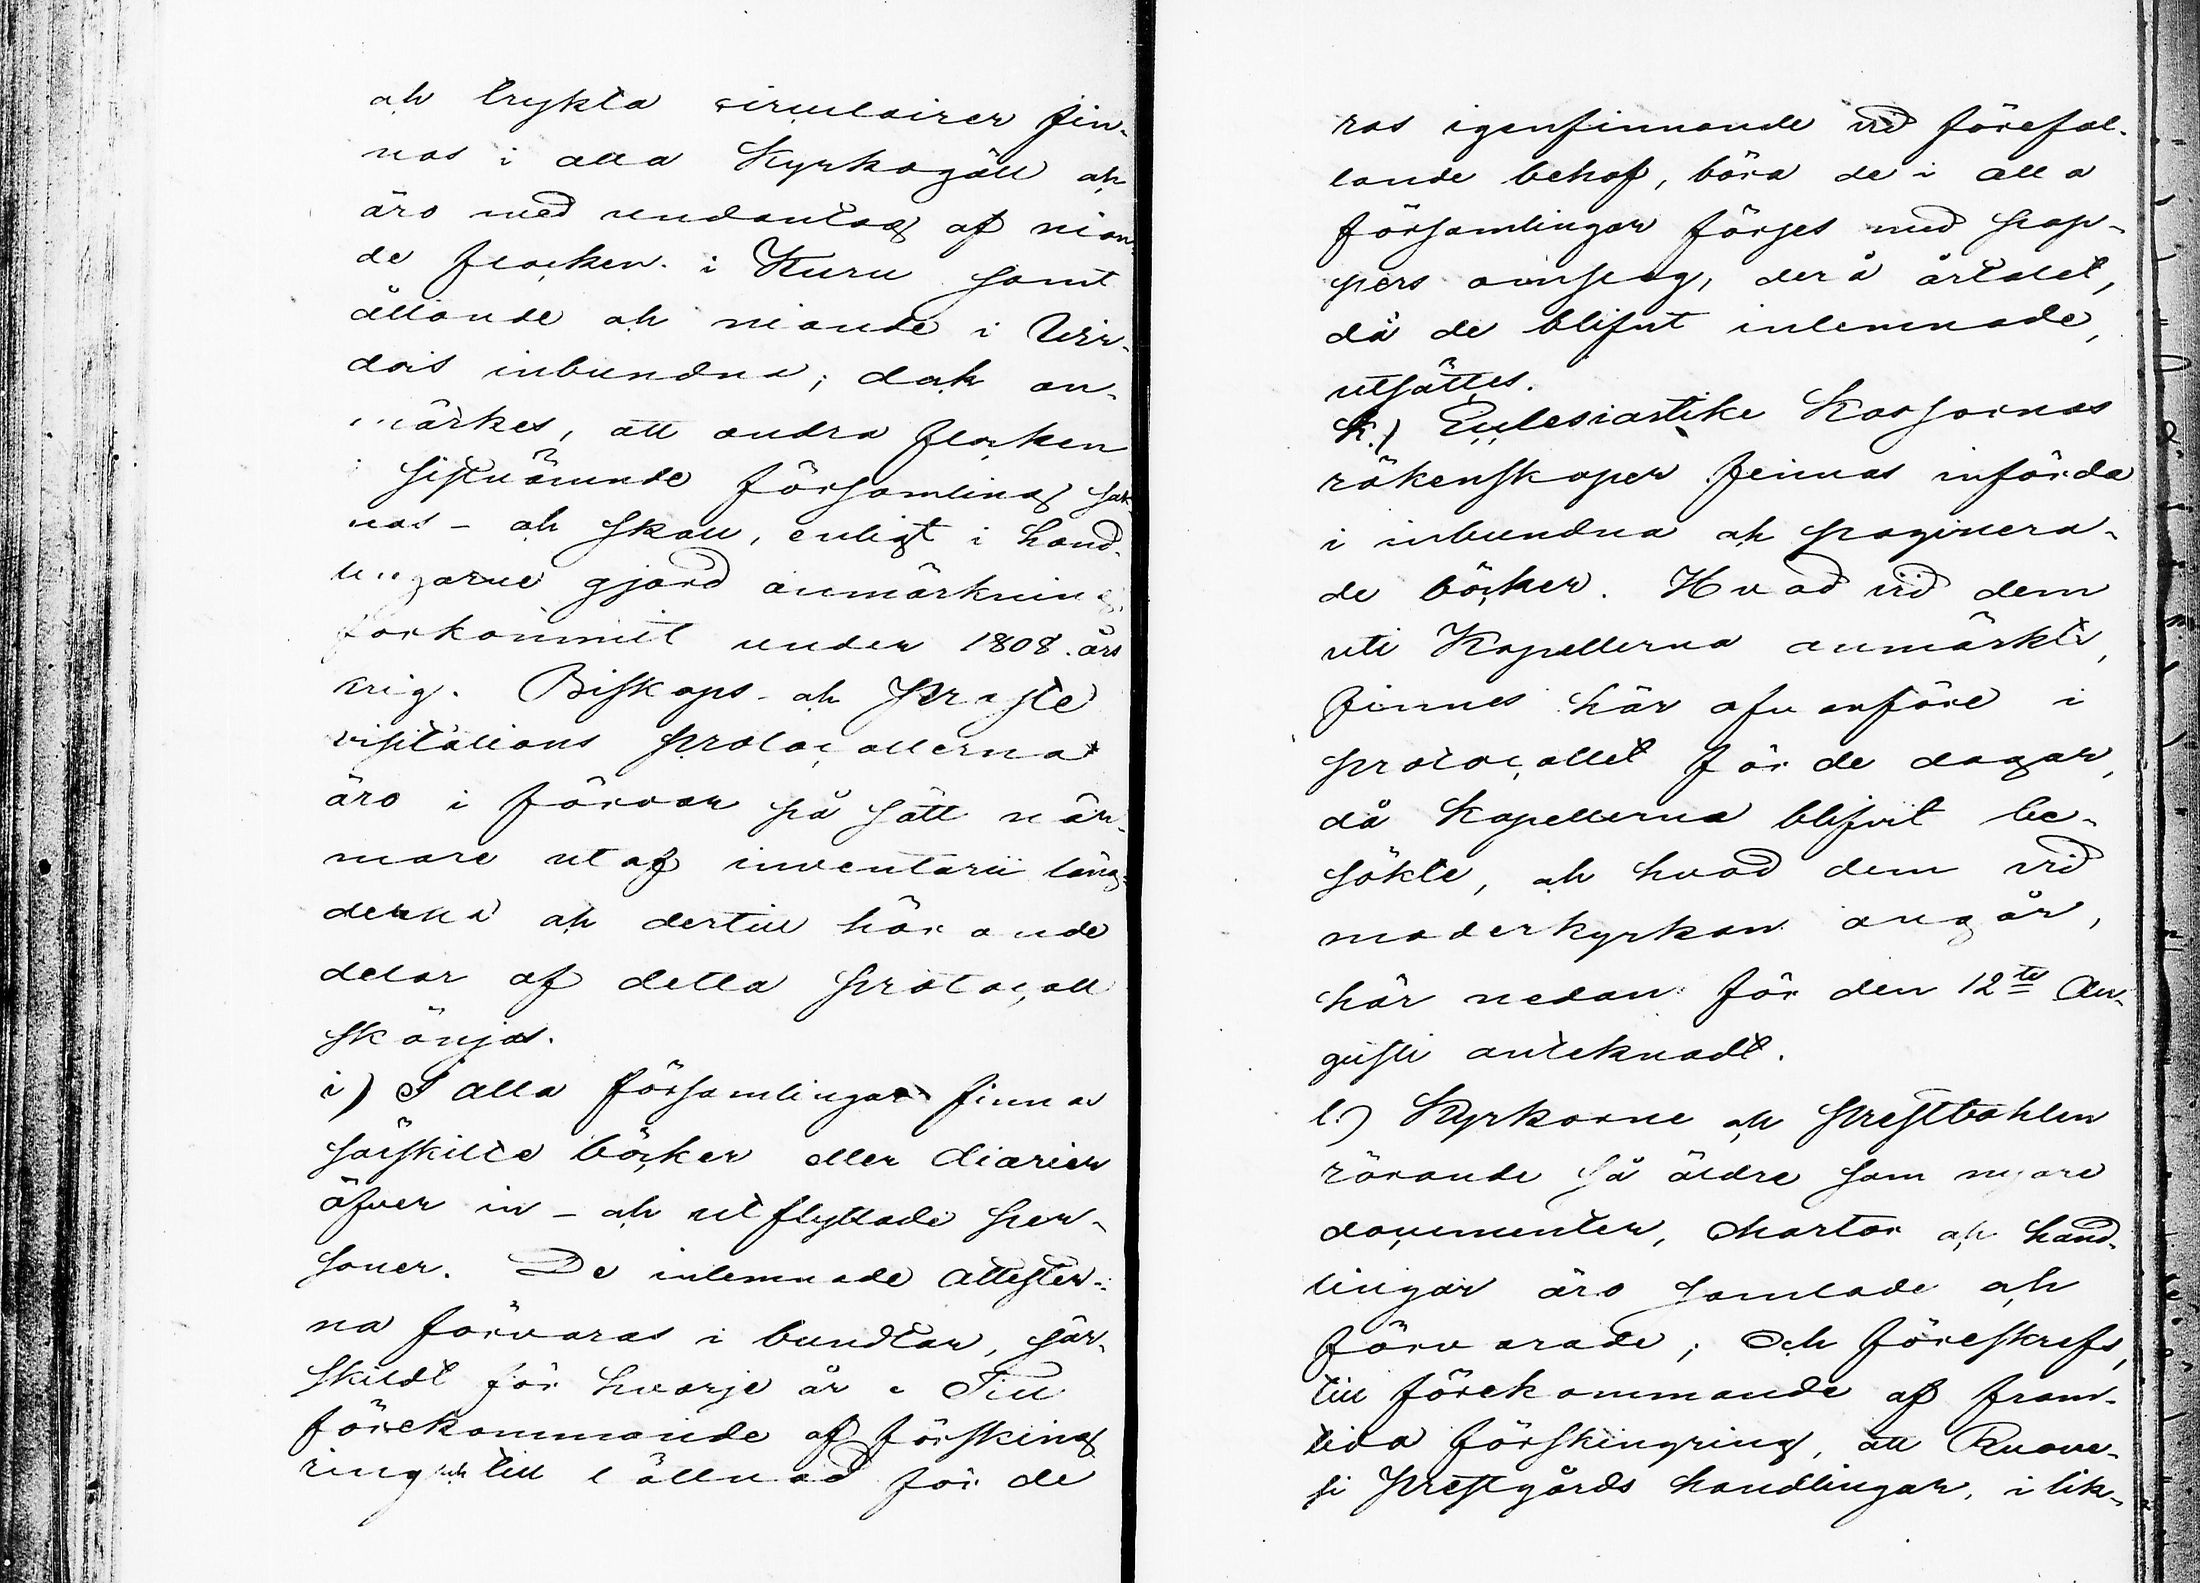 och trykta circulairer fin-
nas i alla Kyrkogäll och
äro med undantag af nion-
de flocken i Kuru samt
ållonde och nionde i Wir-
dois inbundna; doch an-
märkes, att andra flocken
i sistnämnde församling sak-
nas – och skall, enligt i hand-
lingarne gjord anmärkning,
förkommit under 1808 års
krig. Biskops- och Proste
visitations protocollerna
äro i förvar på sätt när-
mare utaf inventarii läng-
derna och dertill hörande
delar af detta protocoll
skönjas.
i) I alla församlingar finnas
särskilte böcker eller diarier
öfver in- och utflyttade per-
soner. De inlemnade attester-
na förvaras i bundtar, sär-
skildt för hvarje år. Till
förekommande af försking-
ring och till lättnad för de
ras igenfinnande vid förefal-
lande behof, böra de i alla
församlingar förses med pap-
pers omslag, derå årtalet,
då de blifvit inlemnade,
utsättes.
k.) Ecclesiastike Kassornas
räkenskaper finnas införda
i inbundna och paginera-
de böcker. Hvad vid dem
uti Kapellerna anmärkts,
finnes här ofvanföre i
protocollet för de dagar,
då Kapellerna blifvit be-
sökte, och hvad dem vid
moderkyrkan angår,
här nedan för den 12te Au-
gusti anteknadt.
l.) Kyrkorne och Prestbohlen
rörande så äldre som nyare
documenter, chartor och hand-
lingar äro samlade och
förvarade; Och föreskrefs,
till förekommande af fram-
tida förskingring, att Ruove-
si Prestgårds handlingar, i lik-